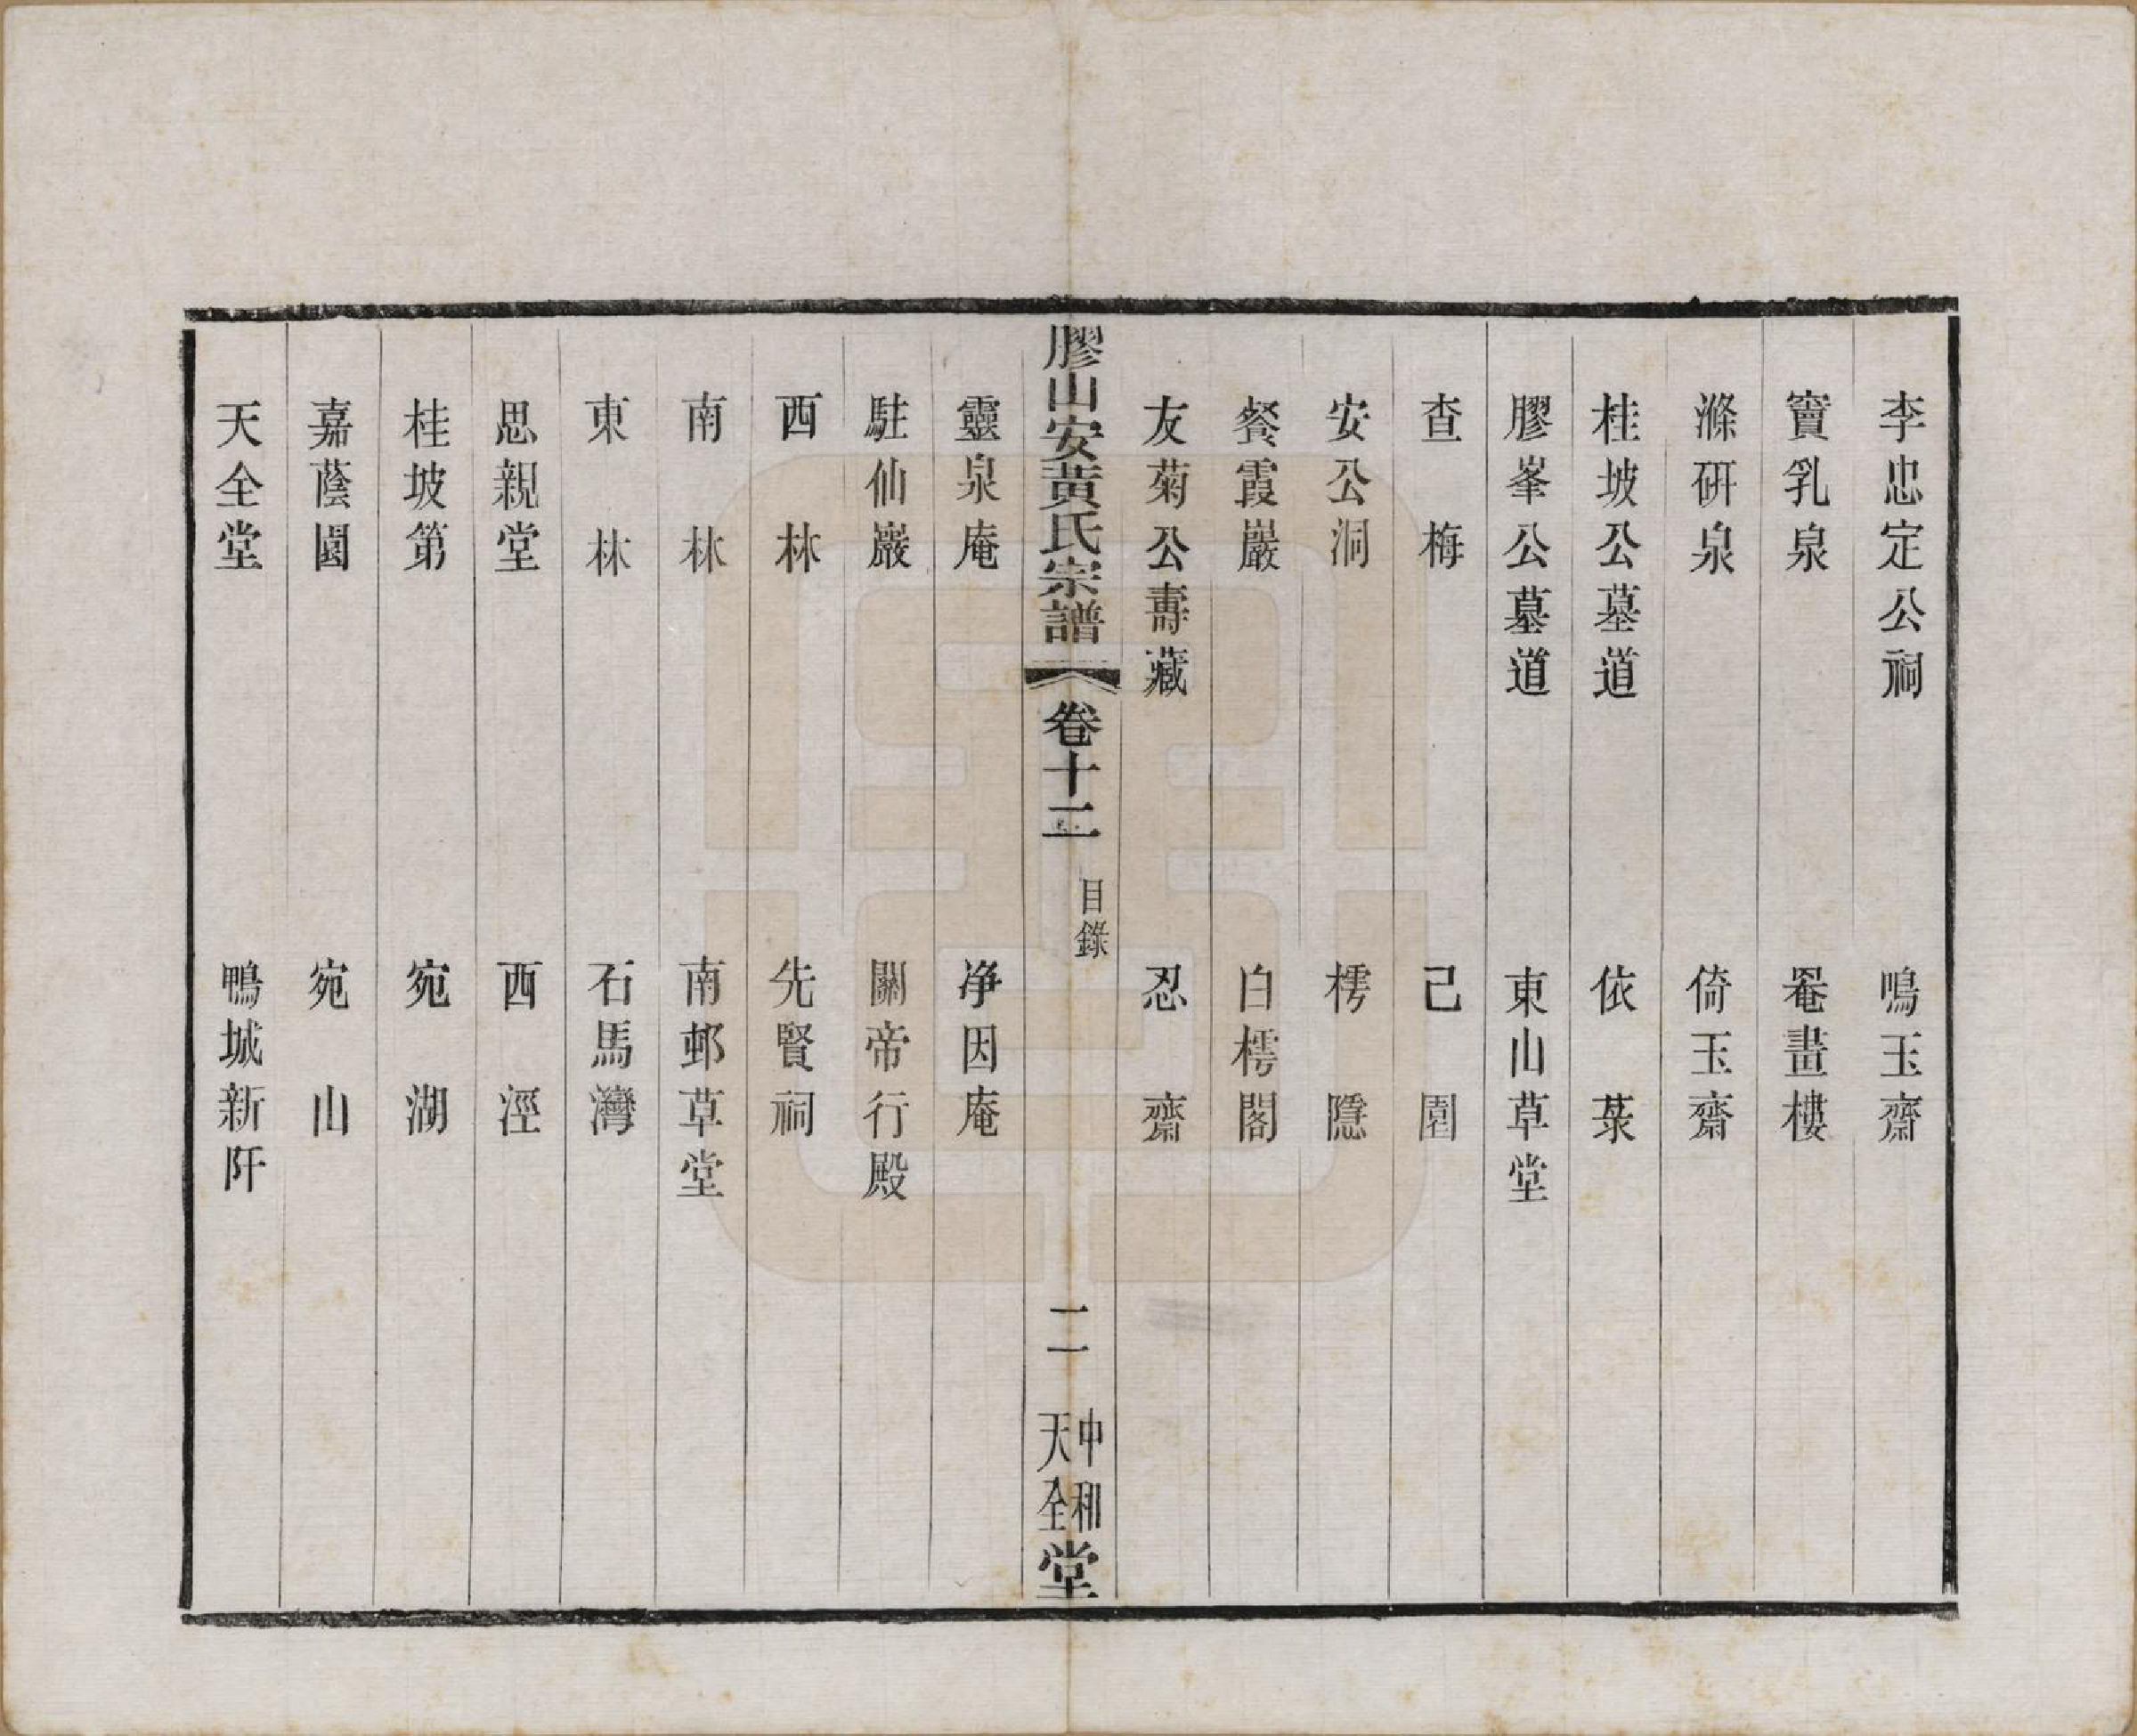 李忠定公祠 鳴玉齋
竇乳泉 罨畫樓
滌硏泉 倚玉齋
桂坡公墓道 依菉
膠峯公墓道 東山草堂
查梅 己園
安公洞 樗隱
餐霞巖 白樗閣
友菊公壽藏 忍齋
膠山安黃氏宗譜 卷十二 目錄 二 中和天全堂
靈泉庵 净因庵
駐仙巖 關帝行殿
西林 先賢祠
南林 南邨草堂
東林 石馬灣
思親堂 西涇
桂坡第 宛湖
嘉蔭園 宛山
天全堂 鴨城新阡